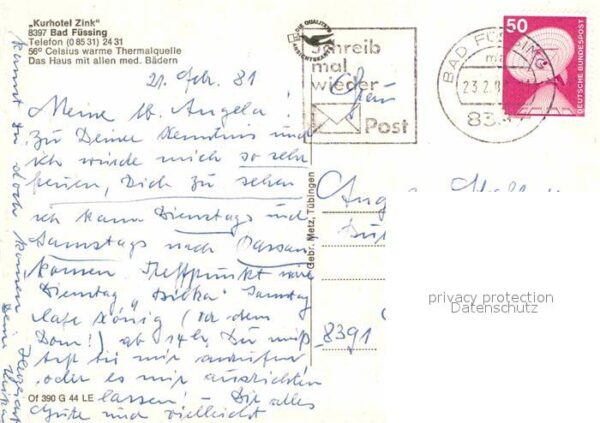 „Kurhotel Zink“
8397 Bad Füssing
Telefon (0 85 31) 24 31
56° Celsius warme Thermalquelle
Das Haus mit allen med. Bädern
21. Feb. 81
Meine lb. Angela!
Zu Deiner Kenntnis und
ich würde mich so sehr
freuen, Dich zu sehen
ich kann Dienstags und
Samstags nach Passau
kommen. Treffpunkt wäre
Dienstag Samstag
Cafe König (vor dem
Dom!) ab 14 h, Du mußt
bei mir anrufen
oder es mir ausrichten
lassen! – Dir alles
Gute und vielleicht
kannst Du doch kommen
Deine
Of 390 G 44 LE
Gebr. Metz, Tübingen
DIE QUALITÄTS
ANSICHTSKARTE
Schreib
mal
wieder
Post
Frau
BAD FÜSSING
23.2.8
839
50
DEUTSCHE BUNDESPOST
8391
privacy protection
Datenschutz